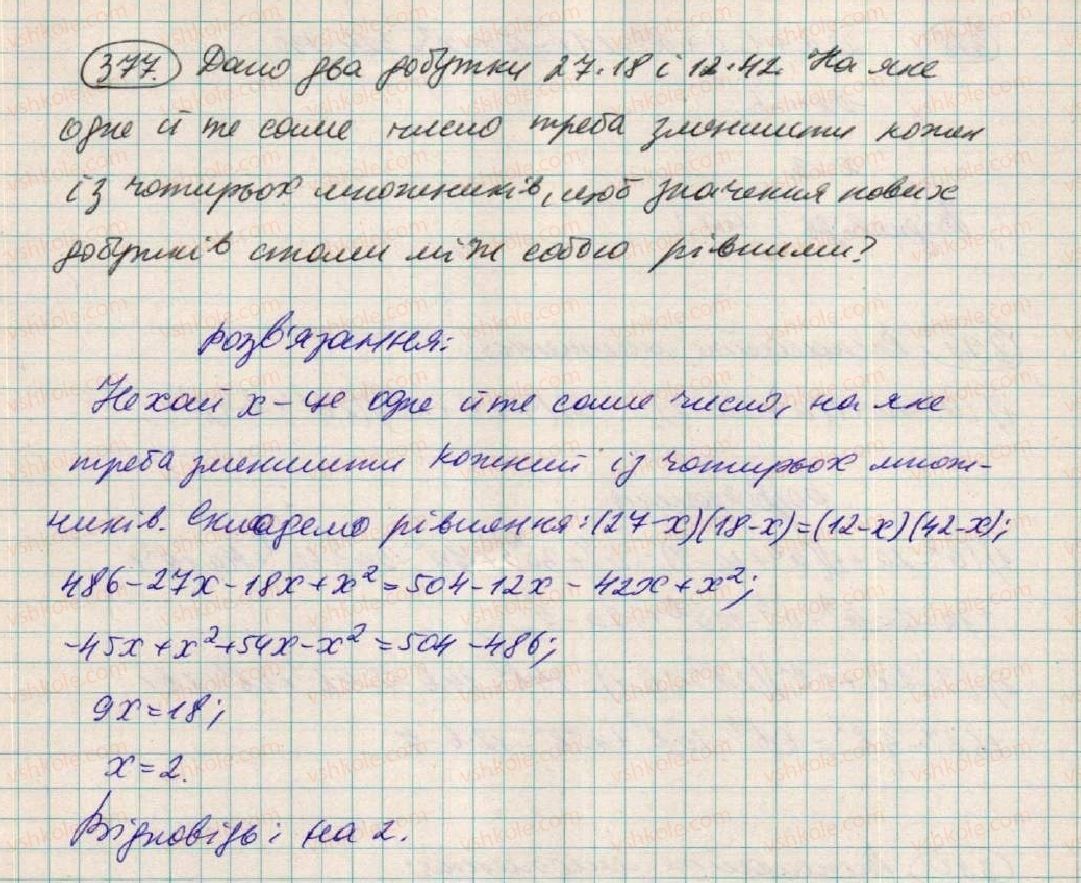 377. Дано два добутки 27·18 і 12·42. На яке
одне й те саме число треба зменшити кожен
із чотирьох множників, щоб значення нових
добутків стали між собою рівними?
Розв'язання:
Нехай x – це одне й те саме число, на яке
треба зменшити кожний із чотирьох множ-
ників. Складемо рівняння: (27-x)(18-x)=(12-x)(42-x);
486-27x-18x+x²=504-12x-42x+x²;
-45x+x²+54x-x²=504-486;
9x=18;
x=2.
Відповідь: на 2.